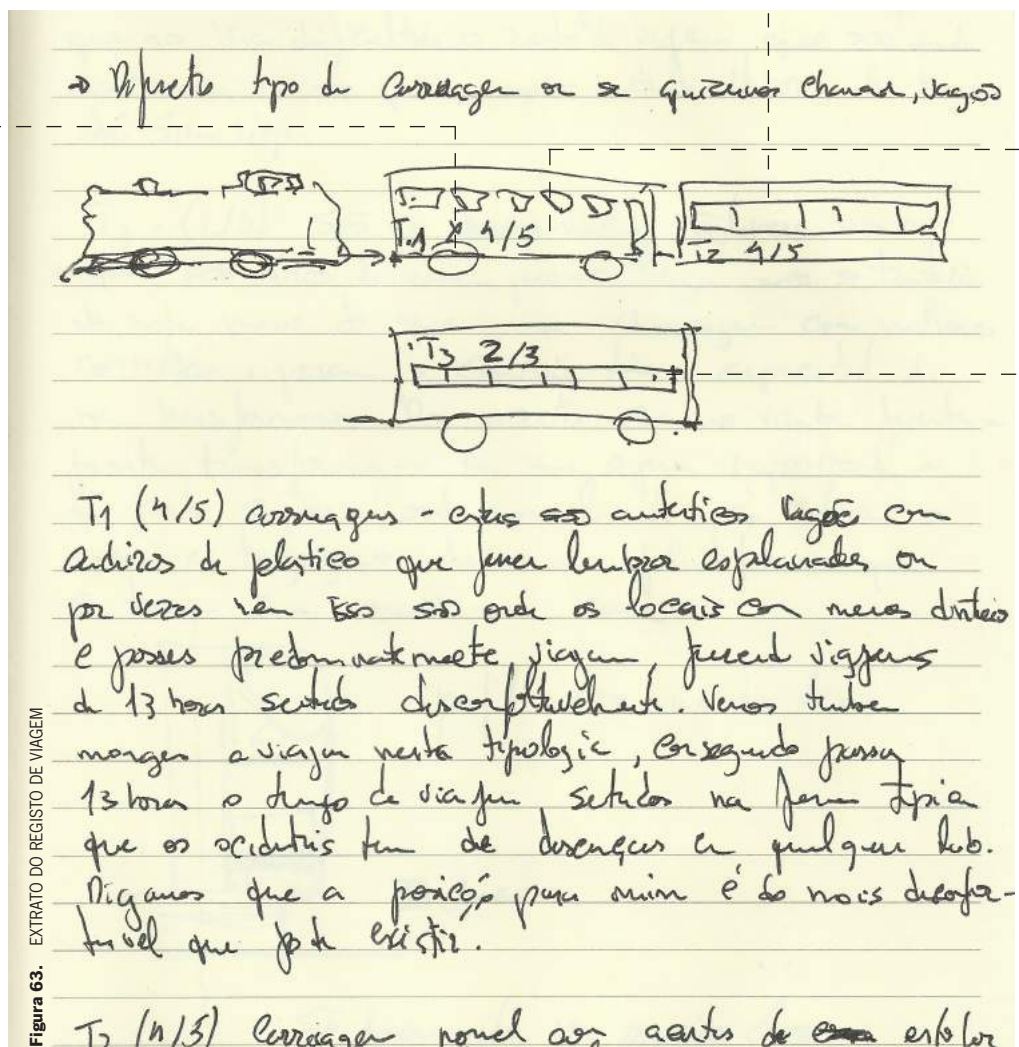 → Diferente tipo de carruagem ou se quizermos chamar, vagões
T.1 4/5
T2 4/5
T3 2/3
T1 (4/5) carruagens - estas são autenticos vagões com
cadeiras de plástico que fazem lembrar esplanadas ou
por vezes nem isso são onde os locais com menos dinheiro
e posses predominatemente viajam, fazend viagens
de 13 horas sentados desconfortavelmente. Vemos tambem
monges a viajar nesta tipologia, conseguindo passar
13 horas o tempo de viagem, sentados na forma tipica
que os ocidentais tem de em qualquer lado.
Digamos que a posição para mim é do mais desconfor-
tavel que pode existir.
T2 (4/5) Carruagem normal com acentos de
Figura 63. EXTRATO DO REGISTO DE VIAGEM